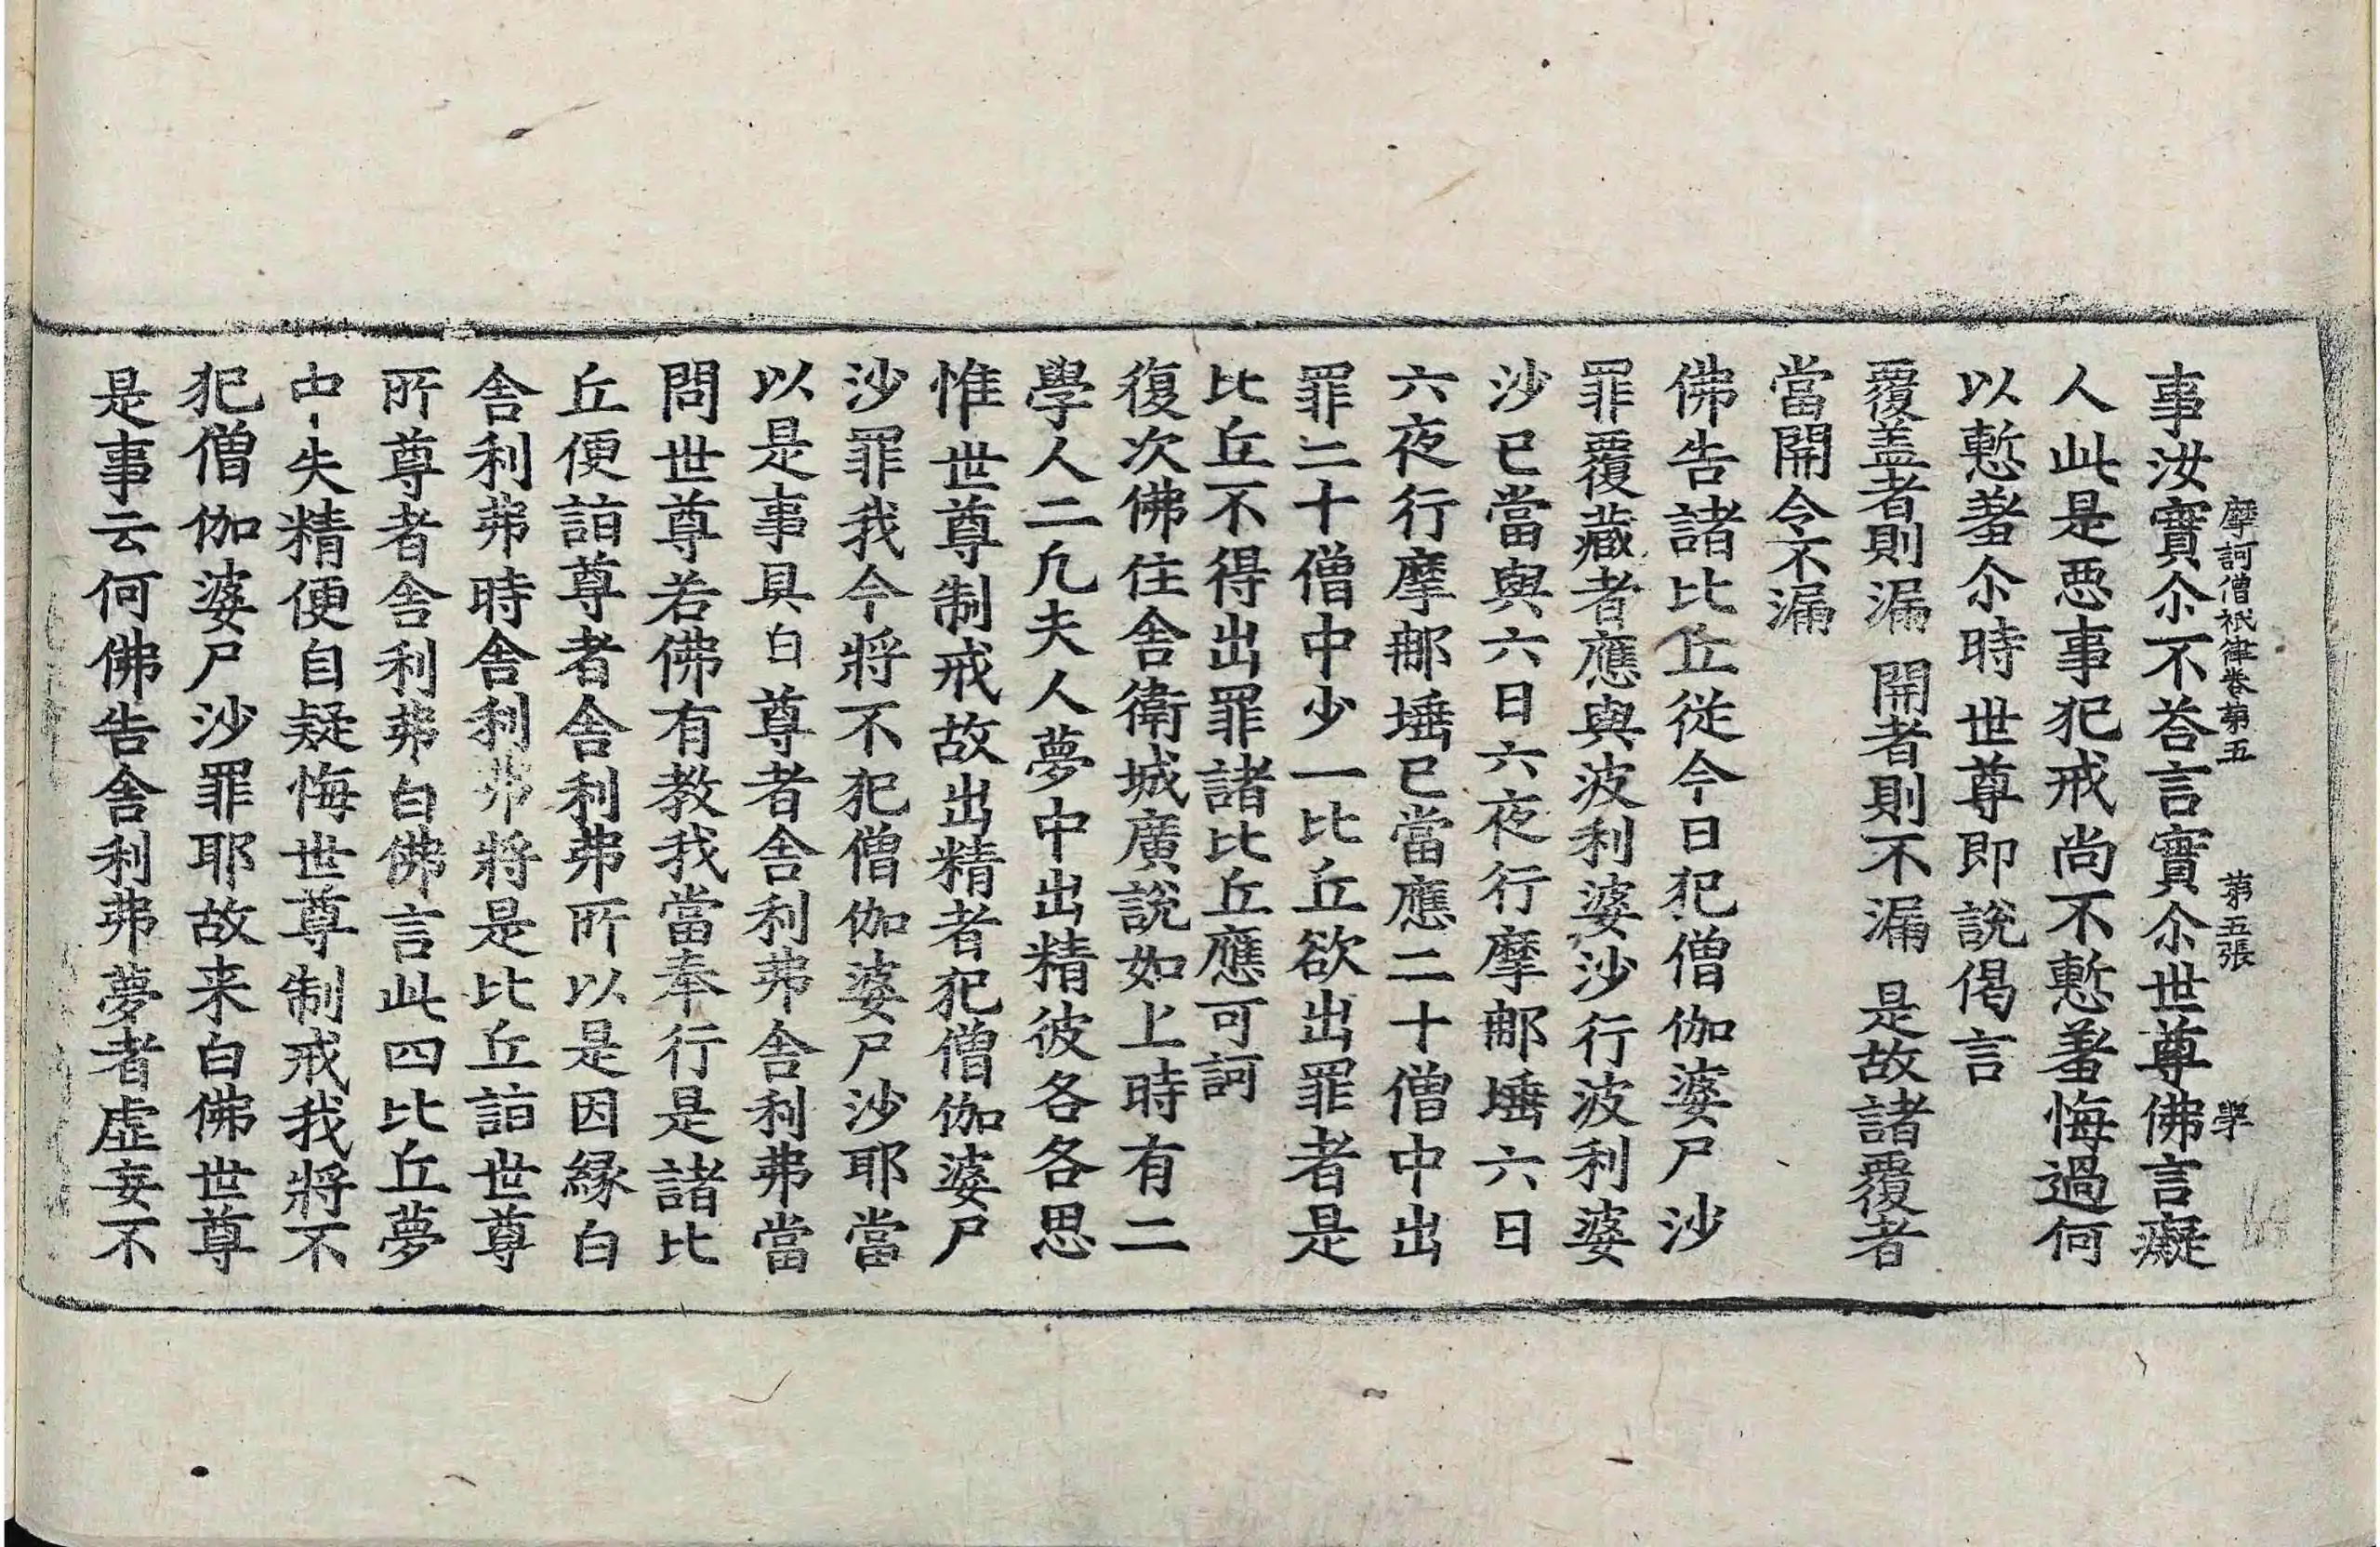 摩訶僧祇律卷第五 第五張 學
事汝實尒不荅言實尒世尊佛言癡
人此是惡事犯戒尚不慙羞悔過何
以慙羞尒時世尊即說偈言
覆盖者則漏 開者則不漏 是故諸覆者
當開令不漏
佛告諸比丘從今日犯僧伽婆尸沙
罪覆藏者應與波利婆沙行波利婆
沙已當與六日六夜行摩那埵六日
六夜行摩那埵已當應二十僧中出
罪二十僧中少一比丘欲出罪者是
比丘不得出罪諸比丘應可訶
復次佛住舍衛城廣說如上時有二
學人二凡夫人夢中出精彼各各思
惟世尊制戒故出精者犯僧伽婆尸
沙罪我今將不犯僧伽婆尸沙耶當
以是事具白尊者舍利弗舍利弗當
問世尊若佛有教我當奉行是諸比
丘便詣尊者舍利弗所以是因緣白
舍利弗時舍利弗將是比丘詣世尊
所尊者舍利弗白佛言此四比丘夢
中失精便自疑悔世尊制戒我將不
犯僧伽婆尸沙罪耶故来白佛世尊
是事云何佛告舍利弗夢者虛妄不